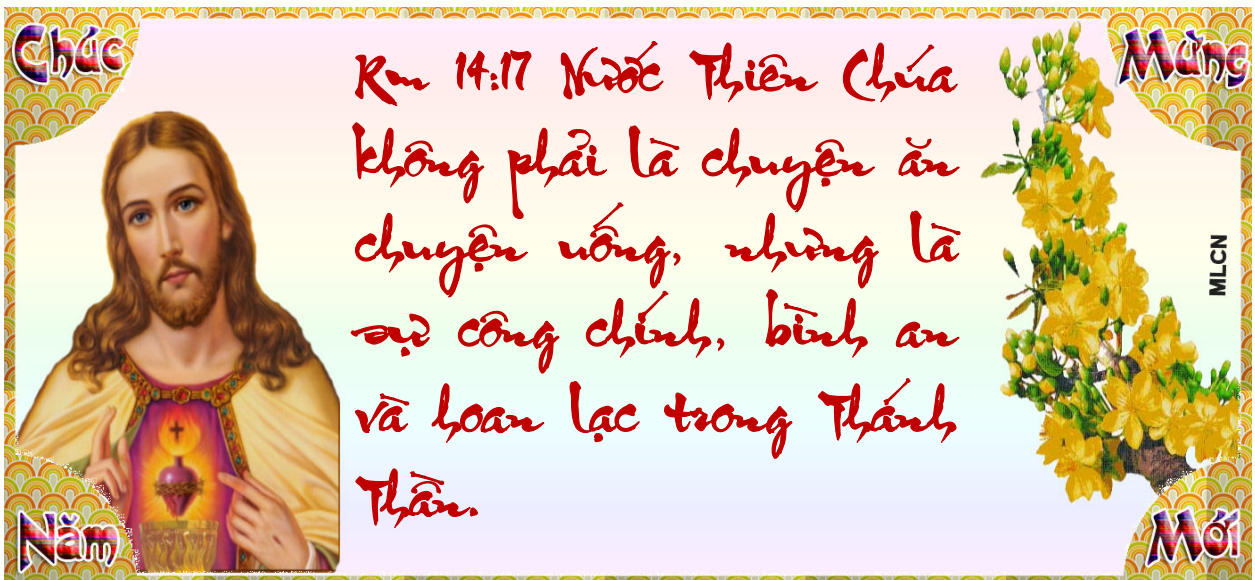 Chúc Mừng
Rm 14:17 Nước Thiên Chúa
không phải là chuyện ăn
chuyện uống, nhưng là
sự công chính, bình an
và hoan lạc trong Thánh
Thần.
MLCN
Năm Mới